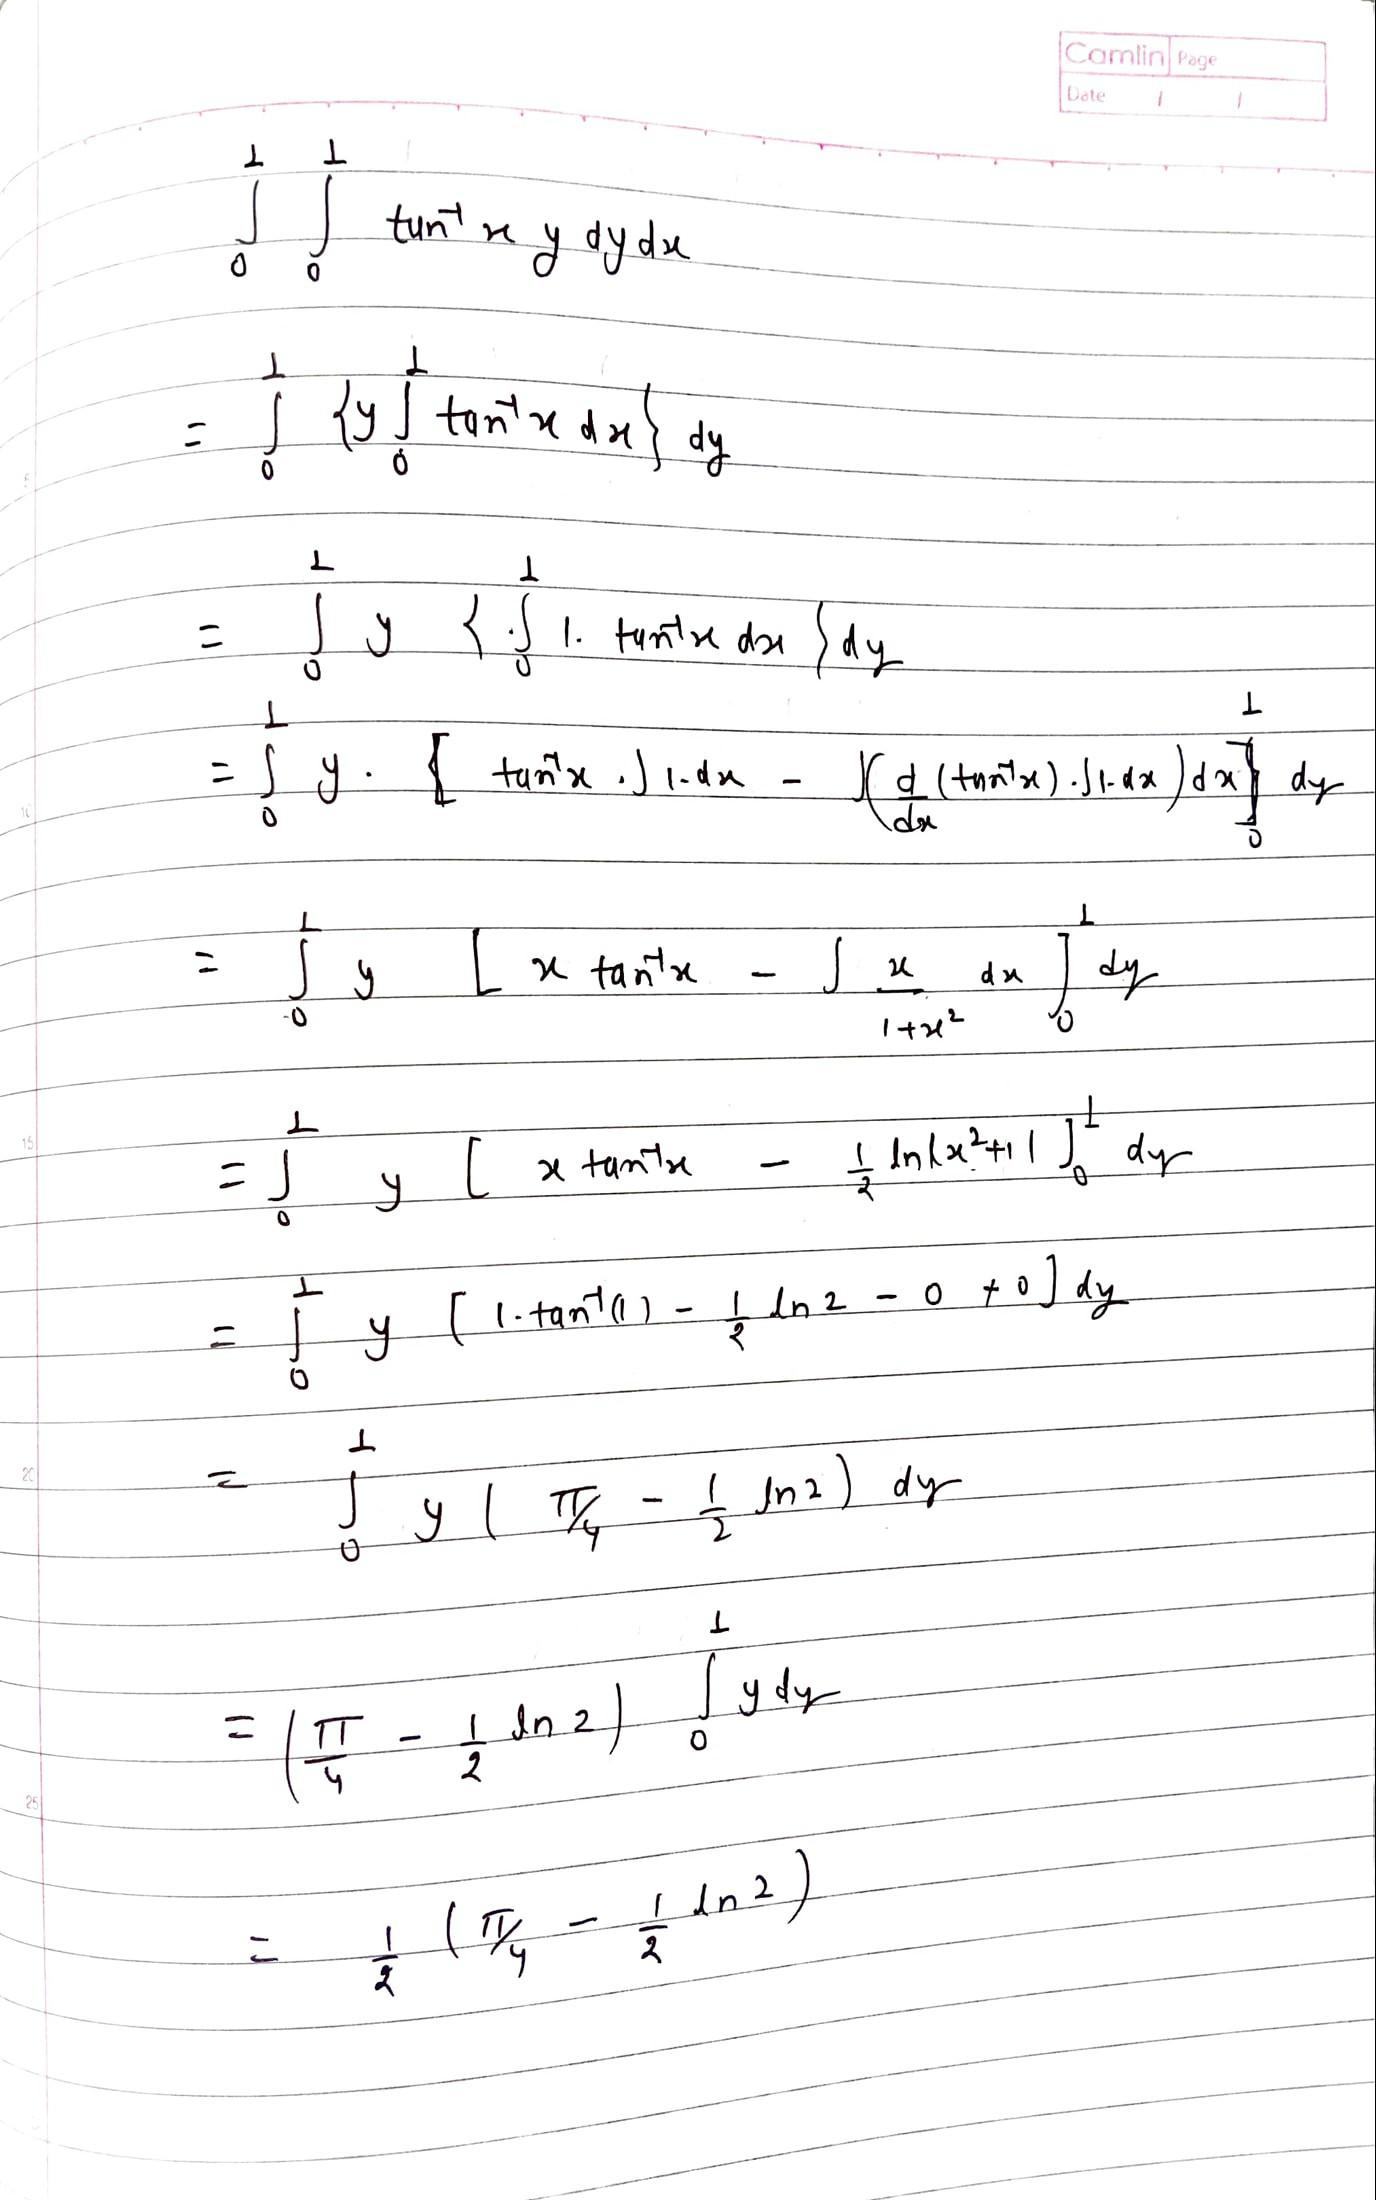 Camlin Page
Date / /
∫₀¹ ∫₀¹ tan⁻¹x y dy dx
= ∫₀¹ {y ∫₀¹ tan⁻¹x dx} dy
= ∫₀¹ y {∫₀¹ 1. tan⁻¹x dx} dy
= ∫₀¹ y. [tan⁻¹x . ∫1.dx - ∫(d/dx (tan⁻¹x) . ∫1.dx) dx]₀¹ dy
= ∫₀¹ y [x tan⁻¹x - ∫ x/(1+x²) dx]₀¹ dy
= ∫₀¹ y [x tan⁻¹x - 1/2 ln|x²+1|]₀¹ dy
= ∫₀¹ y [1.tan⁻¹(1) - 1/2 ln 2 - 0 + 0] dy
= ∫₀¹ y (π/4 - 1/2 ln 2) dy
= (π/4 - 1/2 ln 2) ∫₀¹ y dy
= 1/2 (π/4 - 1/2 ln 2)
5
10
15
20
25